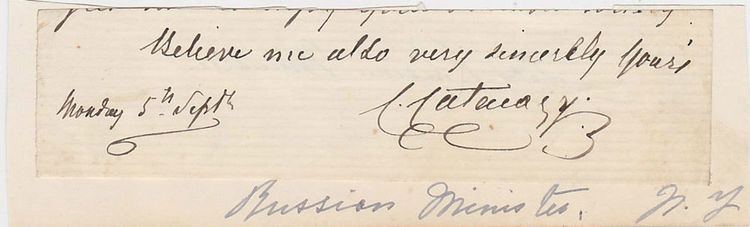 Believe me also very sincerely Yours
Monday 5th Septh
C. Catacazy.
Russian Minister. N. Y